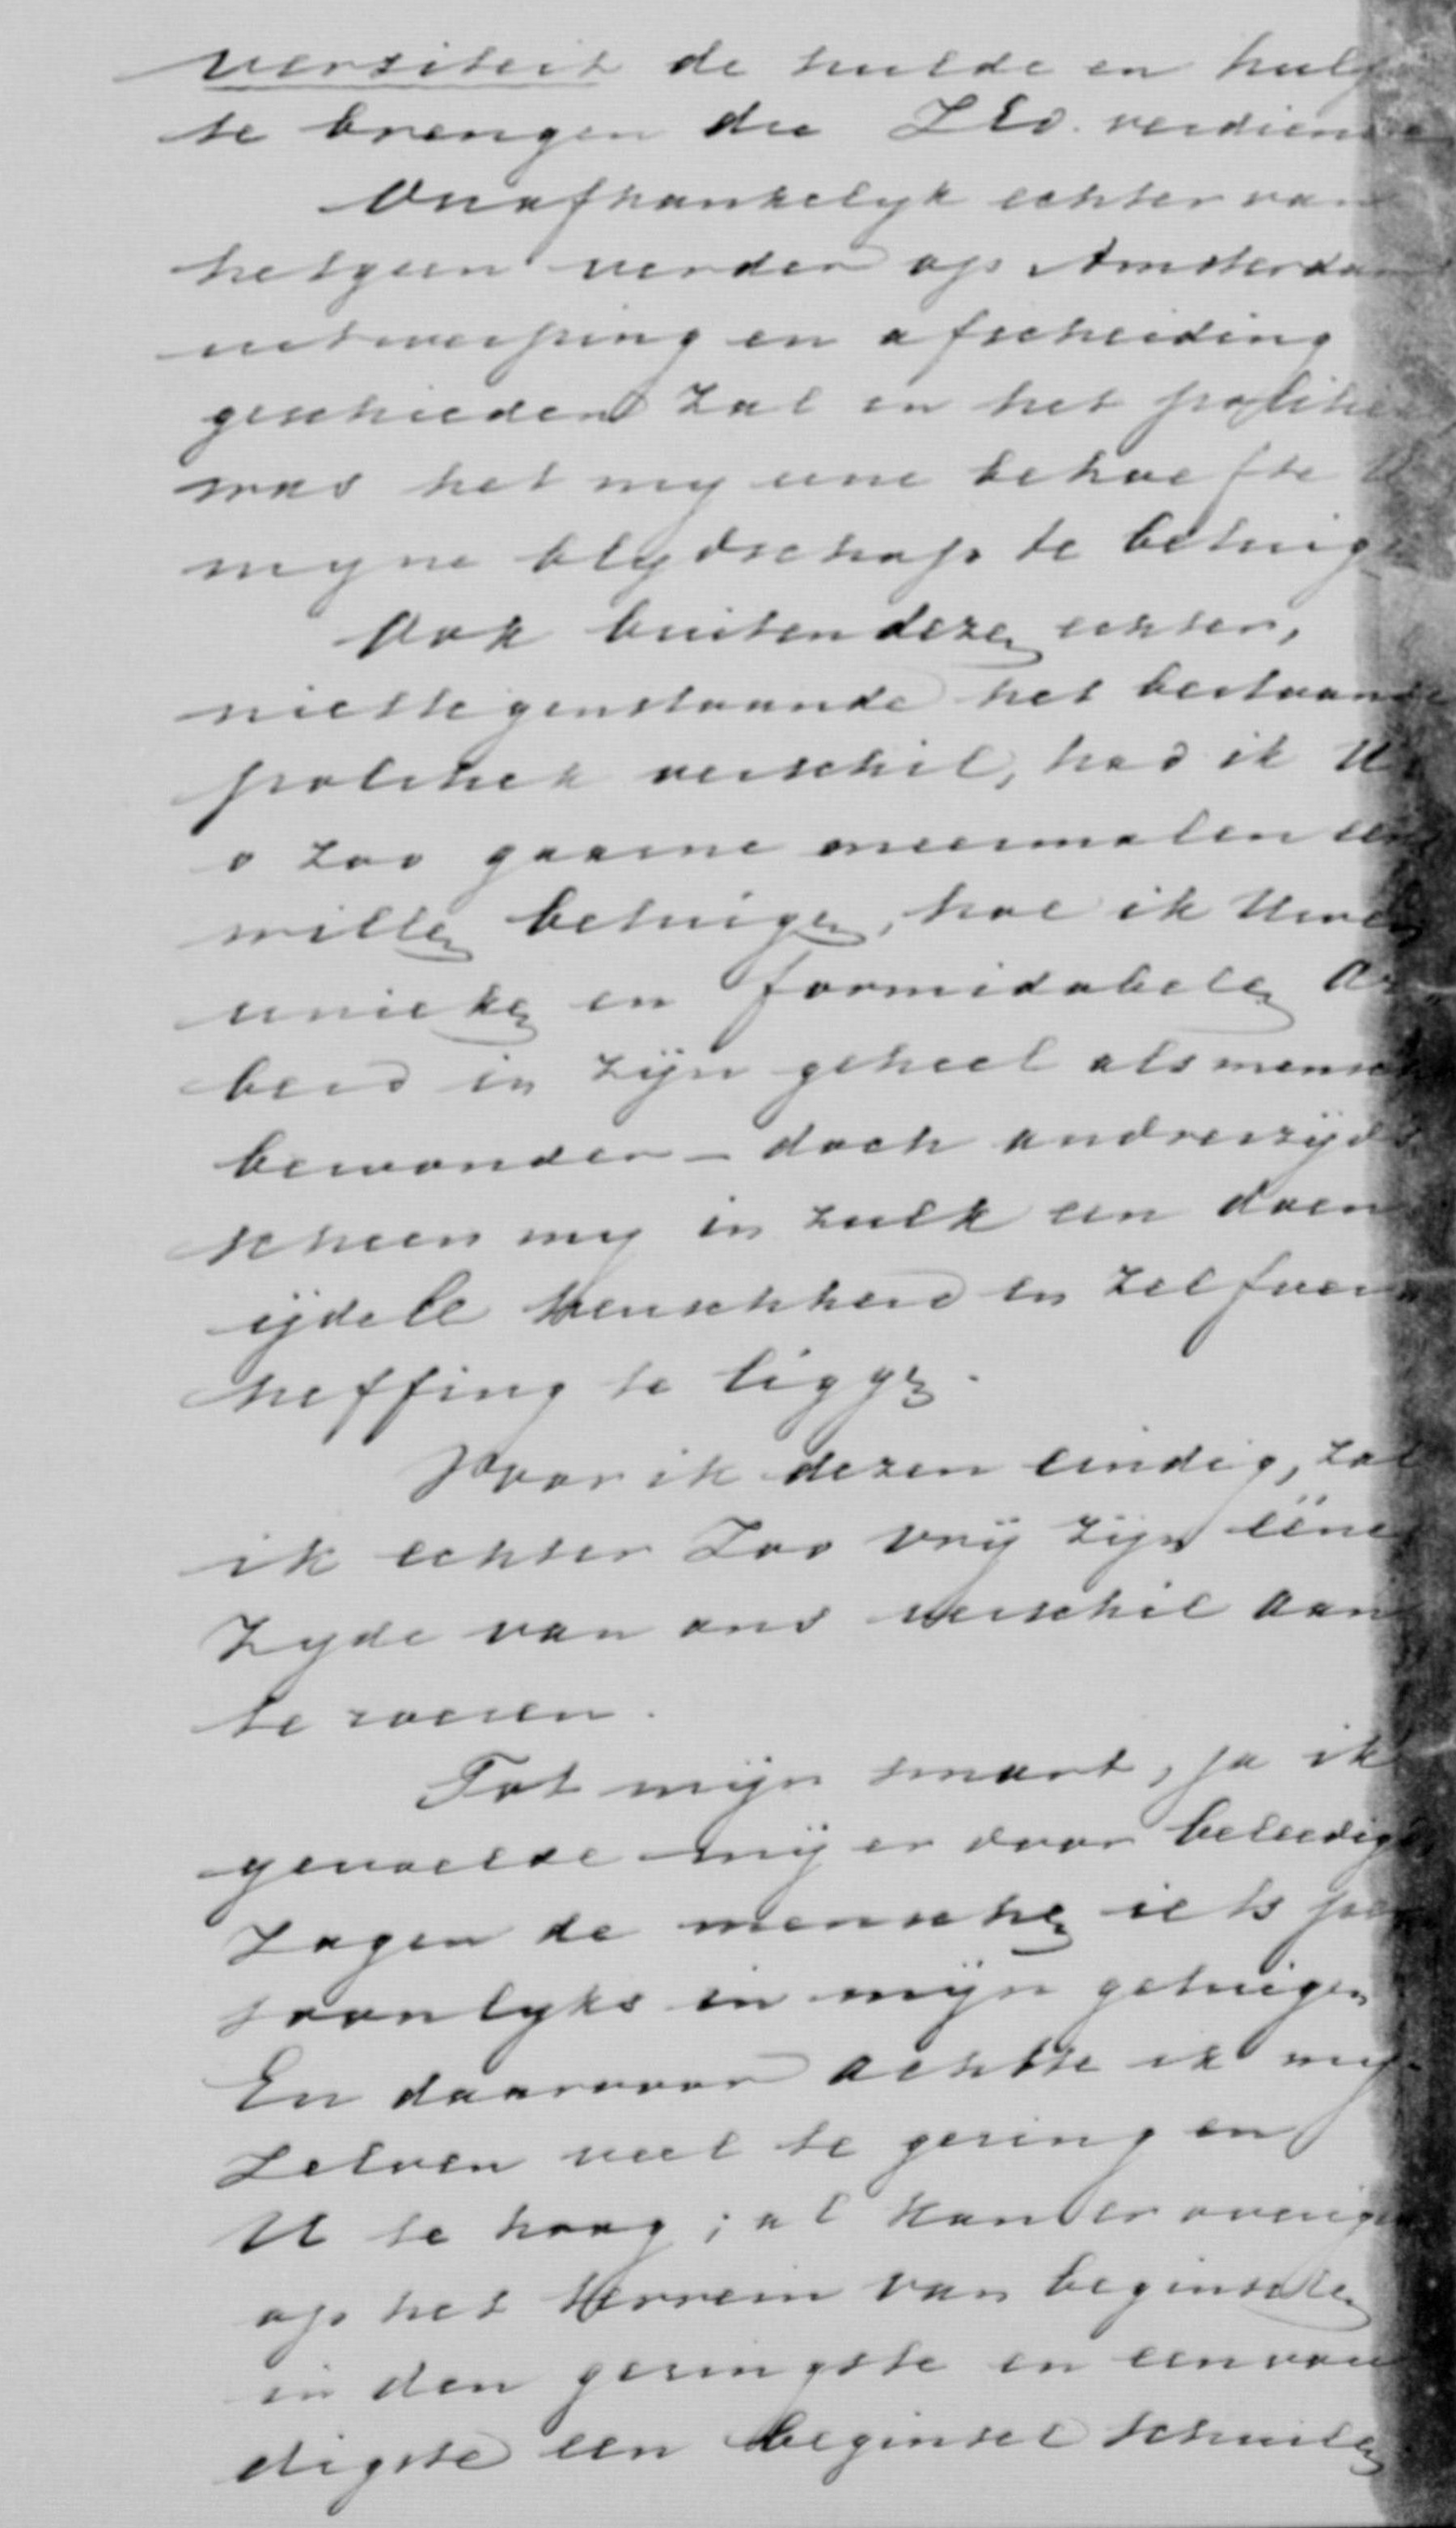 versiteit de hulde en hulp
te brengen die ZEd. verdiende
Onafhankelyk echter van
hetgeen verder op Amsterdam
uitwerping en afscheiding
geschieden zal en het politiek
was het my eene behoefte U
myne blydschap te betuigen
Ook buiten dezen echter,
niettegenstaande het bestaande
politiek verschil, had ik U
o zoo gaarne meermalen eens
willen betuigen, hoe ik Uwen
unieken en formidabelen Ar
beid in zijn geheel als mensch
bewonder – doch andrerzijds
scheen my in zulk een doen
ijdele heuschheid en zelfver
heffing te liggen.
Voor ik dezen eindig, zal
ik echter zoo vrij zijn eéne
zyde van ons verschil aan
te roeren.
Tot mijn smart, ja ik
gevoelde mij er door beleedigd
zagen de menschen iets per
soonlyks in mijn getuigen
En daarvoor achtte ik my
zelven veel te gering en
U te hoog; al kan er overigens
op het terrein van beginselen
in den geringste en eenvou
digste een beginsel schuilen